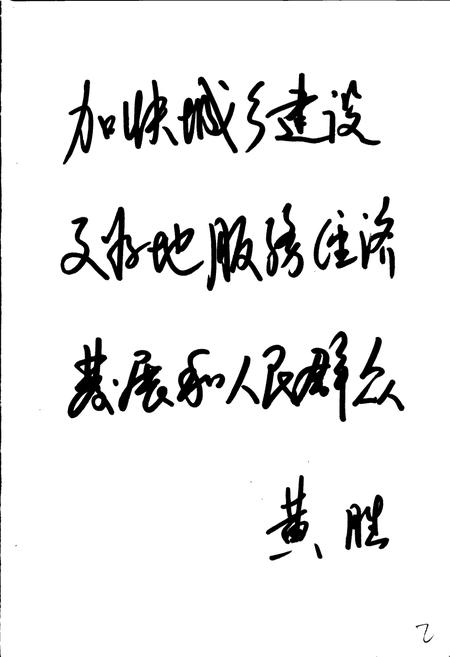 加快城乡建设
更好地服务经济
发展和人民群众
黄胜